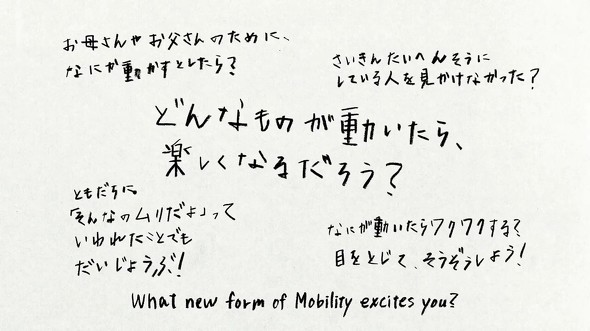 お母さんやお父さんのために、
なにか動かすとしたら?
さいきんたいへんそうに
している人を見かけなかった?
どんなものが動いたら、
楽しくなるだろう?
ともだちに
「そんなのムリだよ」って
いわれたことでも
だいじょうぶ!
なにが動いたらワクワクする?
目をとじて、そうぞうしよう!
What new form of Mobility excites you?